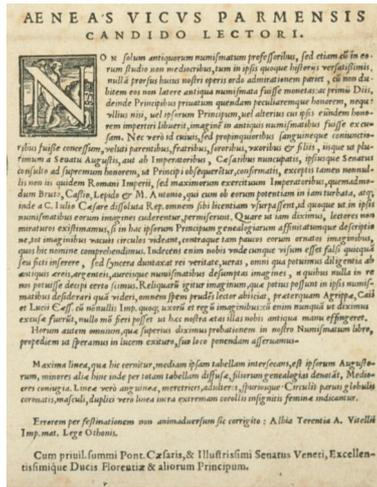 AENEAS VICVS PARMENSIS
CANDIDO LECTORI.
NON solum antiquorum numismatum professoribus, sed etiam cũ in eo-
rum studio non mediocribus, tum in ipsis quoque historijs versatissimis,
nulla prorsus huius nostri operis ordo admirationem pariet, cũ non du-
bitem eos non latere antiqua numismata fuisse monetas: ac primũ Diis,
deinde Principibus priuatum quendam peculiaremque honorem, neque
vllius nisi, vel ipsorum Principum, vel alterius cui ipsis eũndem hono-
rem impertiri libuerit, imaginẽ in antiquis numismatibus fuisse excu-
sam. Nec verò id cuius, sed propinquioribus sanguineque coniunctio-
ribus fuisse concessum, veluti parentibus, fratribus, sororibus, vxoribus & filijs, iisque ut plu-
rimum a Senatu Augustis, aut ab Imperatoribus, Cæsaribus nuncupatis, ipsisque Senatus
consulto ad supremum honorem, ut Principi obsequeretur, confirmatis, exceptis tamen nonnul-
lis non iis quidem Romani Imperij, sed maximorum exercituum Imperatoribus, quemadmo-
dum Bruto, Cassio, Lepido & M. Antonio, qui cum ob eorum potentiam in iam turbata, atque
inde a C. Iulio Cæsare dissoluta Rep. omnem sibi licentiam vsurpassent, id quoque ut in ipsis
numismatibus eorum imagines cuderentur, permiserunt. Quare ut iam diximus, lectores non
miraturos existimamus, si in hac ipsorum Principum genealogiarum affinitatumque descriptio
ne, tot imaginibus vacuis circulos videant, contraque tam paucos eorum ornatos imaginibus,
quàm hic nomine comprehendimus. Indecens enim nobis vnde cunque visum esset falsis quicquã
seu fictis inserere, sed syncera duntaxat rei veritate, ueras, omni qua potuimus diligentia ab
antiquis æreis, argenteis, aureisque numismatibus desumptas imagines, in quibus nulla in re
nos potuisse decipi certo scimus. Reliquarũ igitur imaginum, quæ potius possunt in ipsis numis-
matibus desiderari quã videri, omnem spem prudẽs lector abiiciat, præterquam Agrippæ, Caii
et Lucii Cæss. cũ nonnullis Imp. quoque; uxorũ et regũ imaginibus: cũ enim nunquã ut diximus
excusæ fuerũt, nullo mõ fieri posset ut hac nostra ætas illas nobis antiqua manu effingeret.
Horum autem omnium, quæ superius diximus probationem in nostro Numismatum libro,
propediem ut speramus in lucem exituro, suo loco ponendam asseruamus.
Maxima linea, quæ hic cernitur, mediam ipsam tabellam intersecans, est ipsorum Augusto-
rum, minores aliæ hinc inde per totam tabellam diffusæ, filiorum genealogias denotãt, Medio-
cres coniugia. Lineæ verò anguineæ, meretrices, adulteria, spuriosque Circuli paruis globulis
coronatis, masculi, duplici vero linea intra extremam corollis insignitis feminæ indicantur.
Errorem per festinationem non animaduersum sic corrigito: Albia Terentia A. Vitellii
Imp. mat. Lege Othonis.
Cum priuil. summi Pont. Cæsaris, & Illustrissimi Senatus Veneti, Excellen-
tissimique Ducis Florentiæ & aliorum Principum.